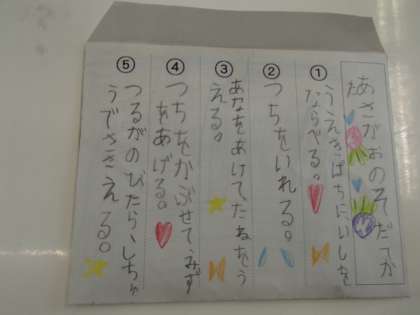 あさがおのそだてか
た
①
うえきばちにいしを
ならべる。
②
つちをいれる。
③
あなをあけてたねをう
える。
④
つちをかぶせてみず
をあげる。
⑤
つるがのびたら、しちゅ
うでささえる。